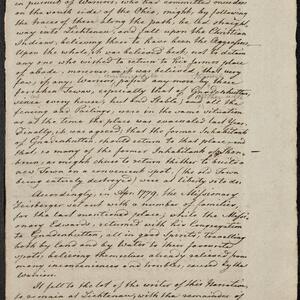 in pursuit of Warriors, who has committed murder
on the north side of the Ohio, might, by following
the traces of them along the path, be led straight
way unto Lichtenau, and fall upon the Christian
Indians, believing these to have been the Aggressors.
Upon the whole, it was believed best, not to advise
any one who wished to return to his former place
of abode, moreover, as it was believed, that very
few, if any Warriors, passed any more by these
forsaken Towns, especially that of Gnadenhutten,
since every house, Hut and Stable, and all the
fencing and Palings, were in the same situation
as at the time the place was evacuated last Year.
Finally, it was agreed; that the former Inhabitants
of Gnadenhutten, should return to that place; and
that as many of the former Inhabitants of Shon-
brun, as might chuse to return thither to build a
new Town in a convenient spot, (the old Town
being entirely destroyed) were at liberty to do so.
Accordingly, in Apr. 1779, the Missionary
Zeisberger set out with a number of families,
for the last mentioned place; while the Missi-
onary Edwards, returned with his Congregation
to Gnadenhutten; all in good Spirits; travelling
both by Land and by Water to their favourite
spots; believing themselves already released from
many inconveniences and troubles, caused by the
Warriors.
It fell to the lot of the writer of this Narrative
to remain at Lichtenau, with the remainder of